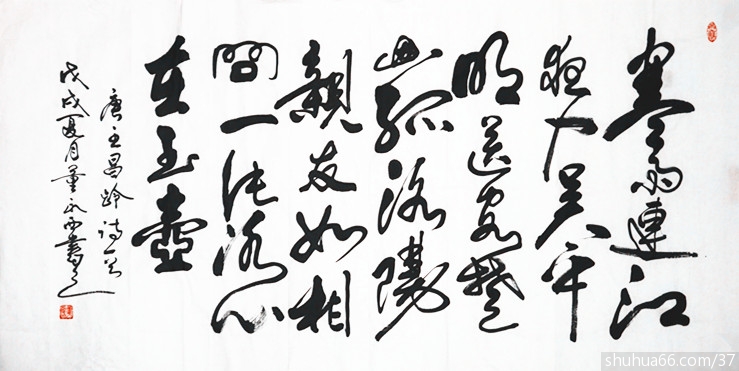 寒雨連江
夜入吴平
明送客楚
山孤洛陽
親友如相
問一片冰心
在玉壺
唐王昌齡诗
戊戌夏月董永西書
shuhua66.com/37